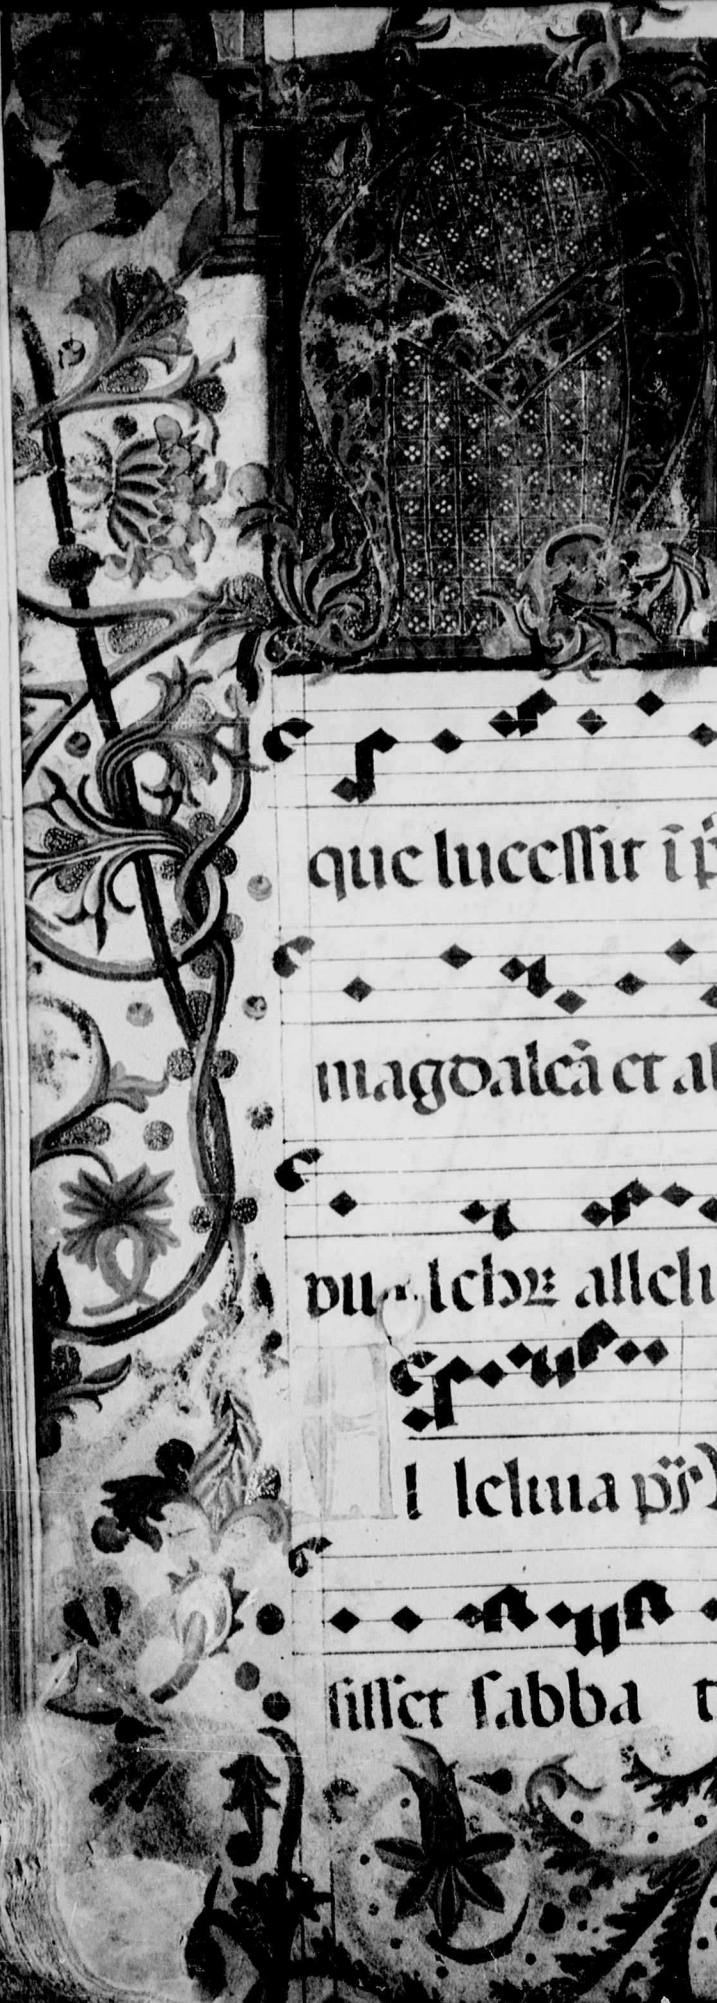 que lucessit ī p̄
magdalēā et al
vu lchꝝ allelu
A l leluia p̄s
sisset sabba t